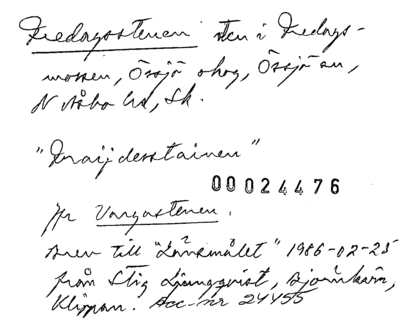 Fredagsstenen sten i Fredags-
mossen, Össjö o hsg, Össjö sn,
N Åsbo hd, Sk.
"Fraijdesstainen"
00024476
Jfr Vargastenen.
Brev till "Länsmålet" 1986-02-25
från Stig Ljungqvist, Bjärnhärn,
Klippan. Acc-nr 24455